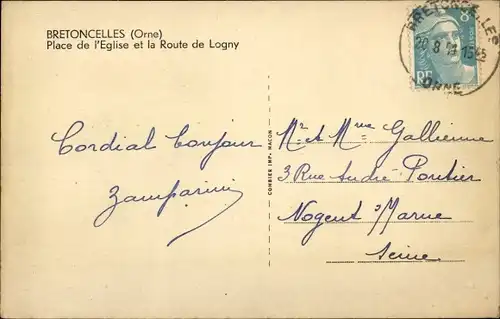 BRETONCELLES (Orne)
Place de l'Eglise et la Route de Logny
BRETONCELLES
20 8
ORNE
RF
Cordial bonjour
Zamparini
COMBIER IMP. MACON
Mr et Mme Gallienne
3 Rue André Pontier
Nogent s/Marne
Seine